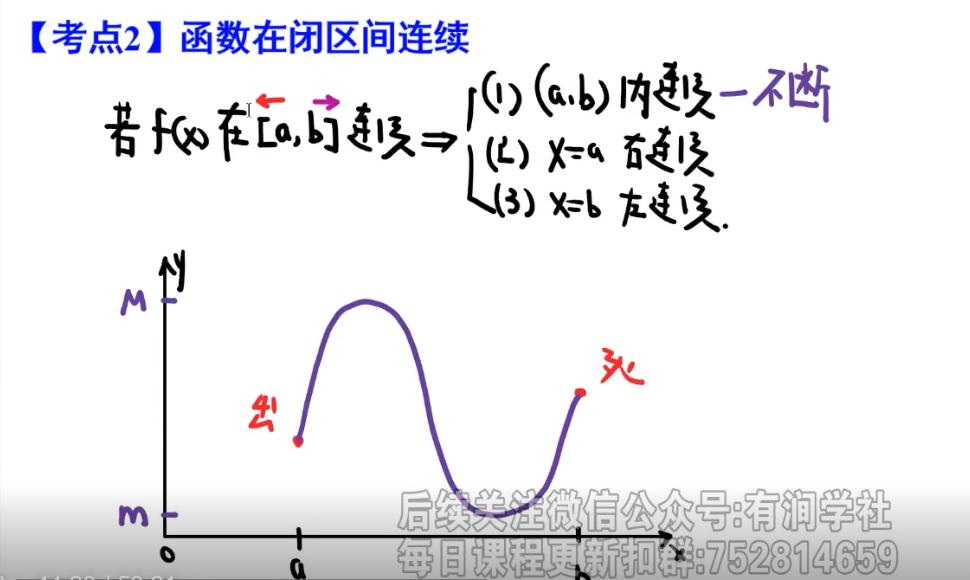 【考点2】函数在闭区间连续
若 f(x) 在 [a,b] 连续 ⇒
(1) (a,b) 内连续 — 不断
(2) x=a 右连续
(3) x=b 左连续.
y
M
死
出
m
后续关注微信公众号:有润学社
0
x
每日课程更新扣群:752814659
a
b